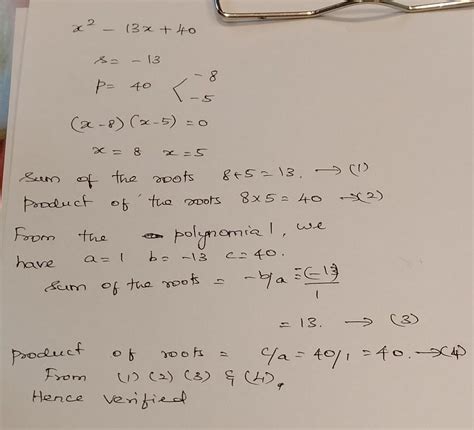 x² - 13x + 40
s = -13
p = 40 < -8
-5
(x-8) (x-5) = 0
x = 8 x = 5
Sum of the roots 8+5 = 13. → (1)
Product of the roots 8x5 = 40 → (2)
From the polynomial, we
have a = 1 b = -13 c = 40.
Sum of the roots = -b/a = -(-13)/1
= 13. → (3)
Product of roots = c/a = 40/1 = 40. → (4)
From (1) (2) (3) & (4),
Hence verified